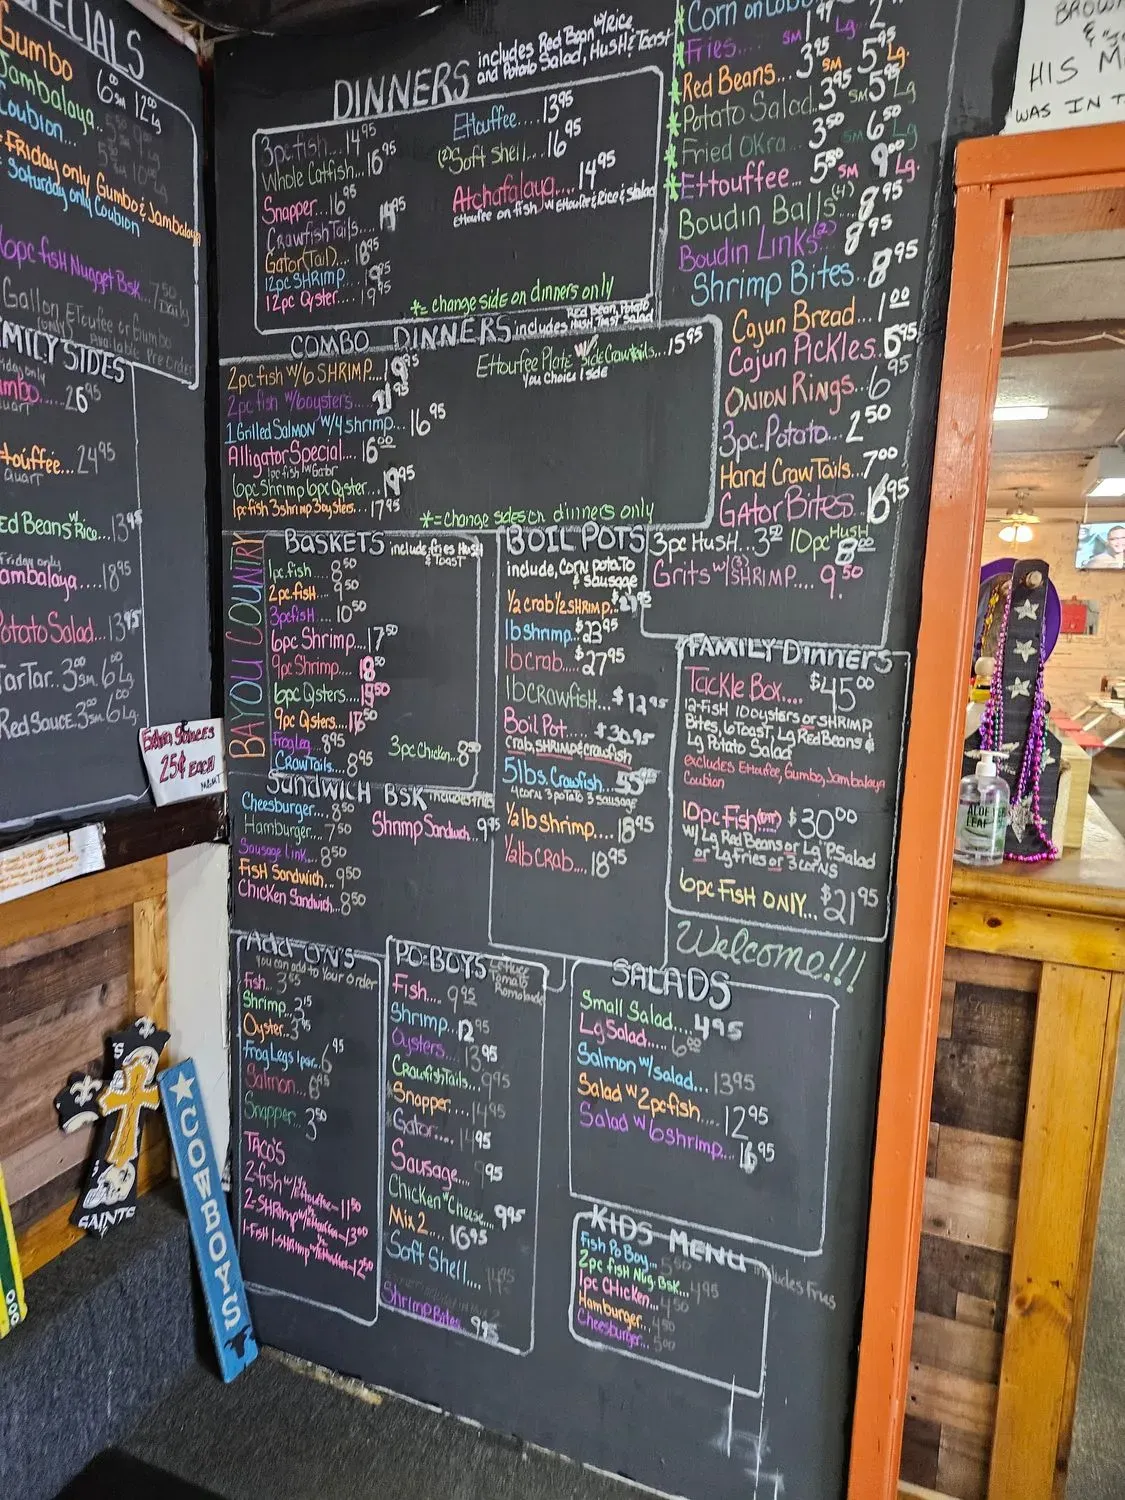 SPECIALS
Gumbo
Jambalaya 6.00 sm 12.00 Lg
Coubion...
Friday only Gumbo & Jambalaya
Saturday only Coubion
6pc fish Nugget Bsk... 7.50 Daily
Gallon Etoufee or Gumbo
Available Pre Order
FAMILY SIDES
Friday only
Quart
26.95
Quart
24.95
Red Beans w/ Rice... 13.95
Friday only
Jambalaya.... 18.95
Potato Salad... 13.95
TarTar.. 3.00 sm. 6.00 Lg.
Red Sauce. 3.00 sm 6.00 Lg.
Extra Sauces
25¢ EACH
MGMT
DINNERS includes Red Bean w/ Rice
and Potato Salad, Hush & Toast
3pc fish... 14.95
Whole Catfish... 16.95
Snapper... 16.95
Crawfish Tails...
Gator (Tail)...
12pc SHRimp...
12pc Oyster... 19.95
Ettouffee... 13.95
(2) Soft Shell... 16.95
Atchafalaya.... 14.95
Ettouffee on fish w/ Ettouffee & Rice & Salad
*= change side on dinners only
COMBO DINNERS includes Red Bean, Potato
Hush Toast Salad
2pc fish w/6 SHRIMP...
2pc fish w/6 oysters...
1 Grilled Salmon w/4 shrimp... 16.95
Alligator Special... 16.00
1pc fish w/ Gator
6pc Shrimp 6pc Oyster...
1pc fish 3 shrimp 3 oysters... 17.95
Ettouffee Plate w/ Side Crawtails... 15.95
You Choice 1 side
*= change sides on dinners only
Corn on Cobb
Fries.... SM Lg.
Red Beans... 3.95 SM 5.95 Lg.
Potato Salad. 3.95 SM 5.95 Lg
Fried Okra... 3.50 SM 6.50 Lg
Ettouffee... 5.50 SM 9.00 Lg.
Boudin Balls (4) 8.95
Boudin Links (2) 8.95
Shrimp Bites.. 8.95
Cajun Bread... 1.00
Cajun Pickles. 6.95
ONION RINGS.. 6.95
3pc. Potato... 2.50
Hand Craw Tails.. 7.00
GATOR BITES.. 16.95
3pc HusH... 3.50 10pc HusH 8.00
Grits w/(3) SHRIMP.... 9.50
BAYOU COUNTRY
BASKETS include, fries Hush
& TOAST
1pc. fish... 8.50
2pc. fish... 9.50
3pc fish.... 10.50
6pc Shrimp... 17.50
9pc Shrimp... 18.50
6pc Oysters...
9pc Oysters....
Frog Leg... 8.95
CRAWTAILS... 8.95
3pc Chicken.. 8.50
BOIL POTS
include, CORN POTATO
& sausage
1/2 crab 1/2 SHRIMP..
1lb shrimp.. $23.95
1lb crab.... $27.95
1lb CRAWFISH... $12.95
Boil Pot...... $30.95
Crab, SHRIMP & crawfish
5lbs. Crawfish...
4 corn 3 potato 3 sausage
1/2 lb shrimp... 18.95
1/2 lb CRAB.... 18.95
FAMILY Dinners
Tackle Box.... $45.00
12-FISH 10 oysters or SHRIMP
Bites, 6 ToasT, Lg Red Beans &
Lg Potato Salad
excludes Ettoufee, Gumbo, Jambalaya
Coubion
10pc Fish $30.00
w/ Lg Red Beans or Lg P. Salad
or Lg Fries or 3 corns
6pc FisH ONLY... $21.95
Welcome!!!
Sandwich BSK includes fries
Cheesburger... 8.50
Hamburger... 7.50
Sausage Link... 8.50
FisH Sandwich... 9.50
Chicken Sandwich.. 8.50
Shrimp Sandwich.. 9.95
Add-ON'S
You can add to your order
Fish...
Shrimp..
Oyster..
Frog Legs 1pair.. 6.95
Salmon...
Snapper... 3.50
TACO'S
2-fish w/ 1/2 Ettouffee- 11.50
2-SHRimp w/ 1/2 Ettouffee- 13.00
1-FisH 1-SHRimp w/ 1/2 Ettouffee- 12.50
PO-BOYS Lettuce
Tomato
Romolaude
Fish.... 9.95
Shrimp... 12.95
Oysters... 13.95
Crawfish Tails.. 9.95
Snapper.... 14.95
Gator.... 14.95
Sausage.... 9.95
Chicken w/ Cheese.. 9.95
Mix 2.... 16.95
Soft Shell.... 14.95
Shrimp Bites. 9.95
SALADS
Small Salad.... 4.95
Lg Salad..... 6.00
Salmon w/salad... 13.95
Salad w 2pc fish... 12.95
Salad w 6 shrimp... 16.95
KIDS MENU includes Fries
Fish Po Boy... 5.50
2pc fish Nug. Bsk... 4.95
1pc Chicken... 4.50
Hamburger... 4.50
Cheesburger... 5.00
HIS
WAS IN
ALOE
LEAF
SAINTS
COWBOYS